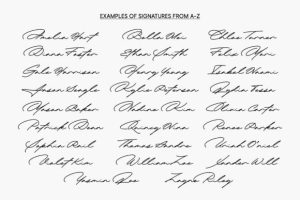 EXAMPLES OF SIGNATURES FROM A-Z
Amelia Hart Bella Wei Chloe Turner
Diana Foster Ethan Smith Felix Mari
Gale Harrison Henry Young Isabel Nkemi
Jason Seagle Kylie Peterson Rayhia Teesen
Mason Baker Nadine Kim Olivia Carter
Patrick Dean Quincy Nina Renee Parker
Sophia Reid Thomas Sandre Uriah O'niel
Violet Kim William Lee Xander Will
Yasmin Bee Zayne Riley